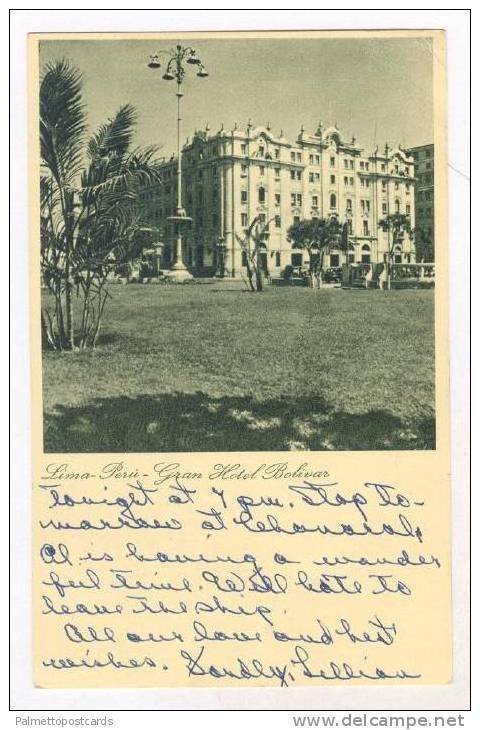 Lima - Perú - Gran Hotel Bolivar
tonight at 7 pm. Stop To-
morrow at Chanaral,
Al is having a wonder
ful time. Will hate to
leave the ship.
All our love and best
wishes. Fondly, Lillian
Palmettopostcards